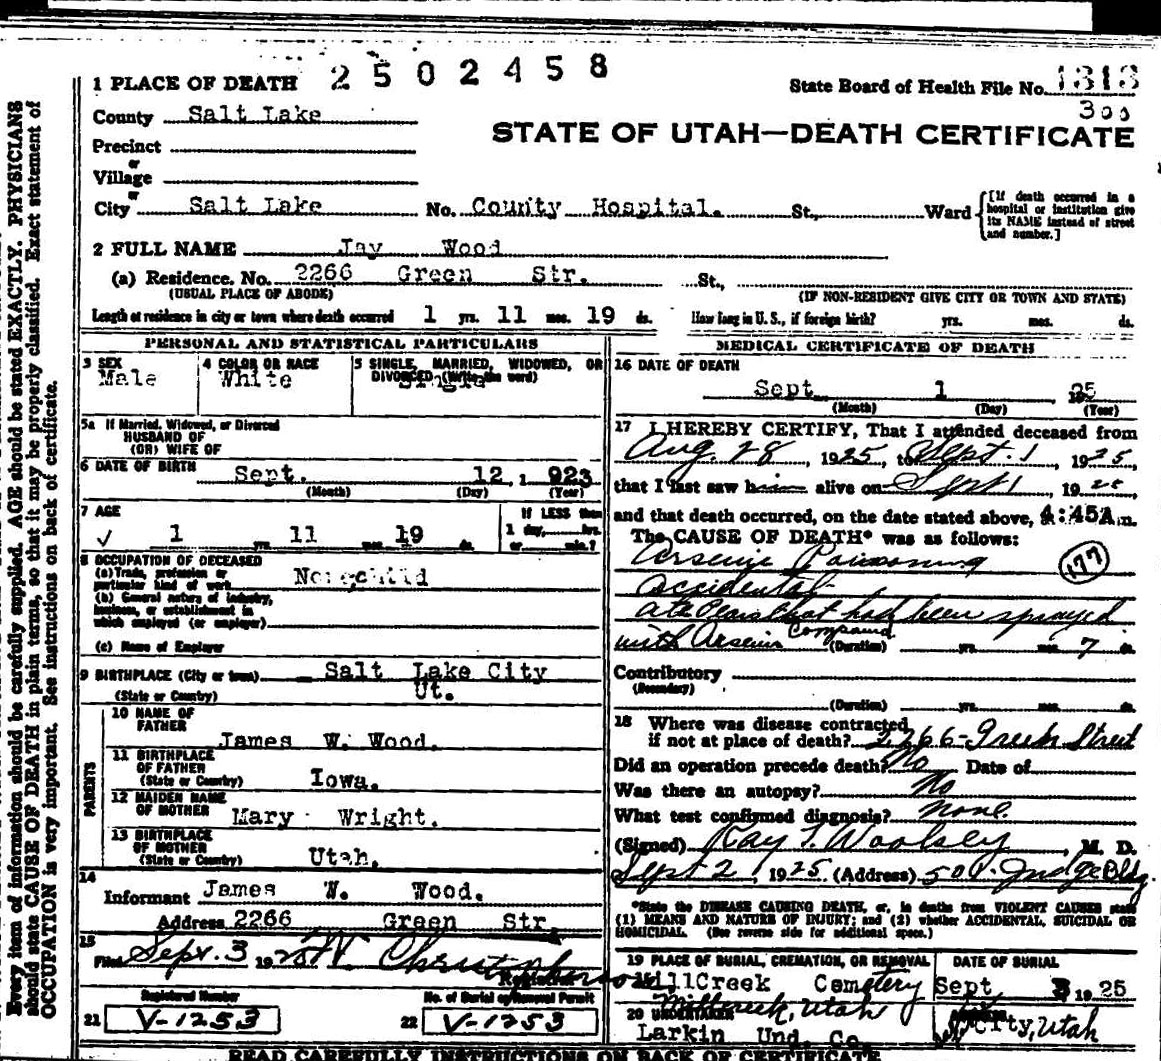 1 PLACE OF DEATH 2502458
State Board of Health File No. 1313
300
County Salt Lake
STATE OF UTAH—DEATH CERTIFICATE
Precinct
or
Village
or
City Salt Lake No. County Hospital. St., Ward [If death occurred in a hospital or institution give its NAME instead of street and number.]
2 FULL NAME Jay Wood
(a) Residence. No. 2266 Green Str. St.,
(USUAL PLACE OF ABODE) (IF NON-RESIDENT GIVE CITY OR TOWN AND STATE)
Length of residence in city or town where death occurred 1 yrs. 11 mos. 19 ds. How long in U. S., if foreign birth? yrs. mos. ds.
PERSONAL AND STATISTICAL PARTICULARS
3 SEX 4 COLOR OR RACE 5 SINGLE, MARRIED, WIDOWED, OR
DIVORCED (Write the word)
Male White Single
5a If Married, Widowed, or Divorced
HUSBAND OF
(OR) WIFE OF
6 DATE OF BIRTH Sept. 12, 1923
(Month) (Day) (Year)
7 AGE If LESS than
1 day, hrs.
or min.?
1 yrs. 11 mos. 19 ds.
8 OCCUPATION OF DECEASED
(a) Trade, profession or
particular kind of work None child
(b) General nature of industry,
business, or establishment in
which employed (or employer)
(c) Name of Employer
9 BIRTHPLACE (City or town) Salt Lake City
(State or Country) Ut.
PARENTS
10 NAME OF
FATHER James W. Wood.
11 BIRTHPLACE
OF FATHER
(State or Country) Iowa.
12 MAIDEN NAME
OF MOTHER Mary Wright.
13 BIRTHPLACE
OF MOTHER
(State or Country) Utah.
14
Informant James W. Wood.
Address 2266 Green Str
15
Filed Sept. 3 1925
Registrar
Registered Number No. of Burial or Removal Permit
21 V-1253 22 V-1253
MEDICAL CERTIFICATE OF DEATH
16 DATE OF DEATH
Sept 1 1925
(Month) (Day) (Year)
17 I HEREBY CERTIFY, That I attended deceased from
Aug. 28, 1925, to Sept. 1 1925,
that I last saw him alive on Sept 1, 1925
and that death occurred, on the date stated above, 4:45A m.
The CAUSE OF DEATH* was as follows:
Arsenic Poisoning 177
accidental
ate pears that had been sprayed
with Arsenic Compound
(Duration) yrs. mos. 7 ds.
Contributory
(Secondary)
(Duration) yrs. mos. ds.
18 Where was disease contracted
if not at place of death? 2266-Green Street
Did an operation precede death? No Date of
Was there an autopsy? No
What test confirmed diagnosis? none.
(Signed) Ray T. Woolsey, M. D.
Sept 2, 1925 (Address) 501 Judge Bldg.
*State the DISEASE CAUSING DEATH, or, in deaths from VIOLENT CAUSES state
(1) MEANS AND NATURE OF INJURY; and (2) whether ACCIDENTAL, SUICIDAL OR
HOMICIDAL. (See reverse side for additional space.)
19 PLACE OF BURIAL, CREMATION, OR REMOVAL DATE OF BURIAL
MillCreek Cemetery Sept 3 1925
Millcreek, Utah
20 UNDERTAKER
Larkin Und. Co. City, Utah
READ CAREFULLY INSTRUCTIONS ON BACK OF CERTIFICATE
Every item of information should be carefully supplied. AGE should be stated EXACTLY. PHYSICIANS
should state CAUSE OF DEATH in plain terms, so that it may be properly classified. Exact statement of
OCCUPATION is very important. See instructions on back of certificate.